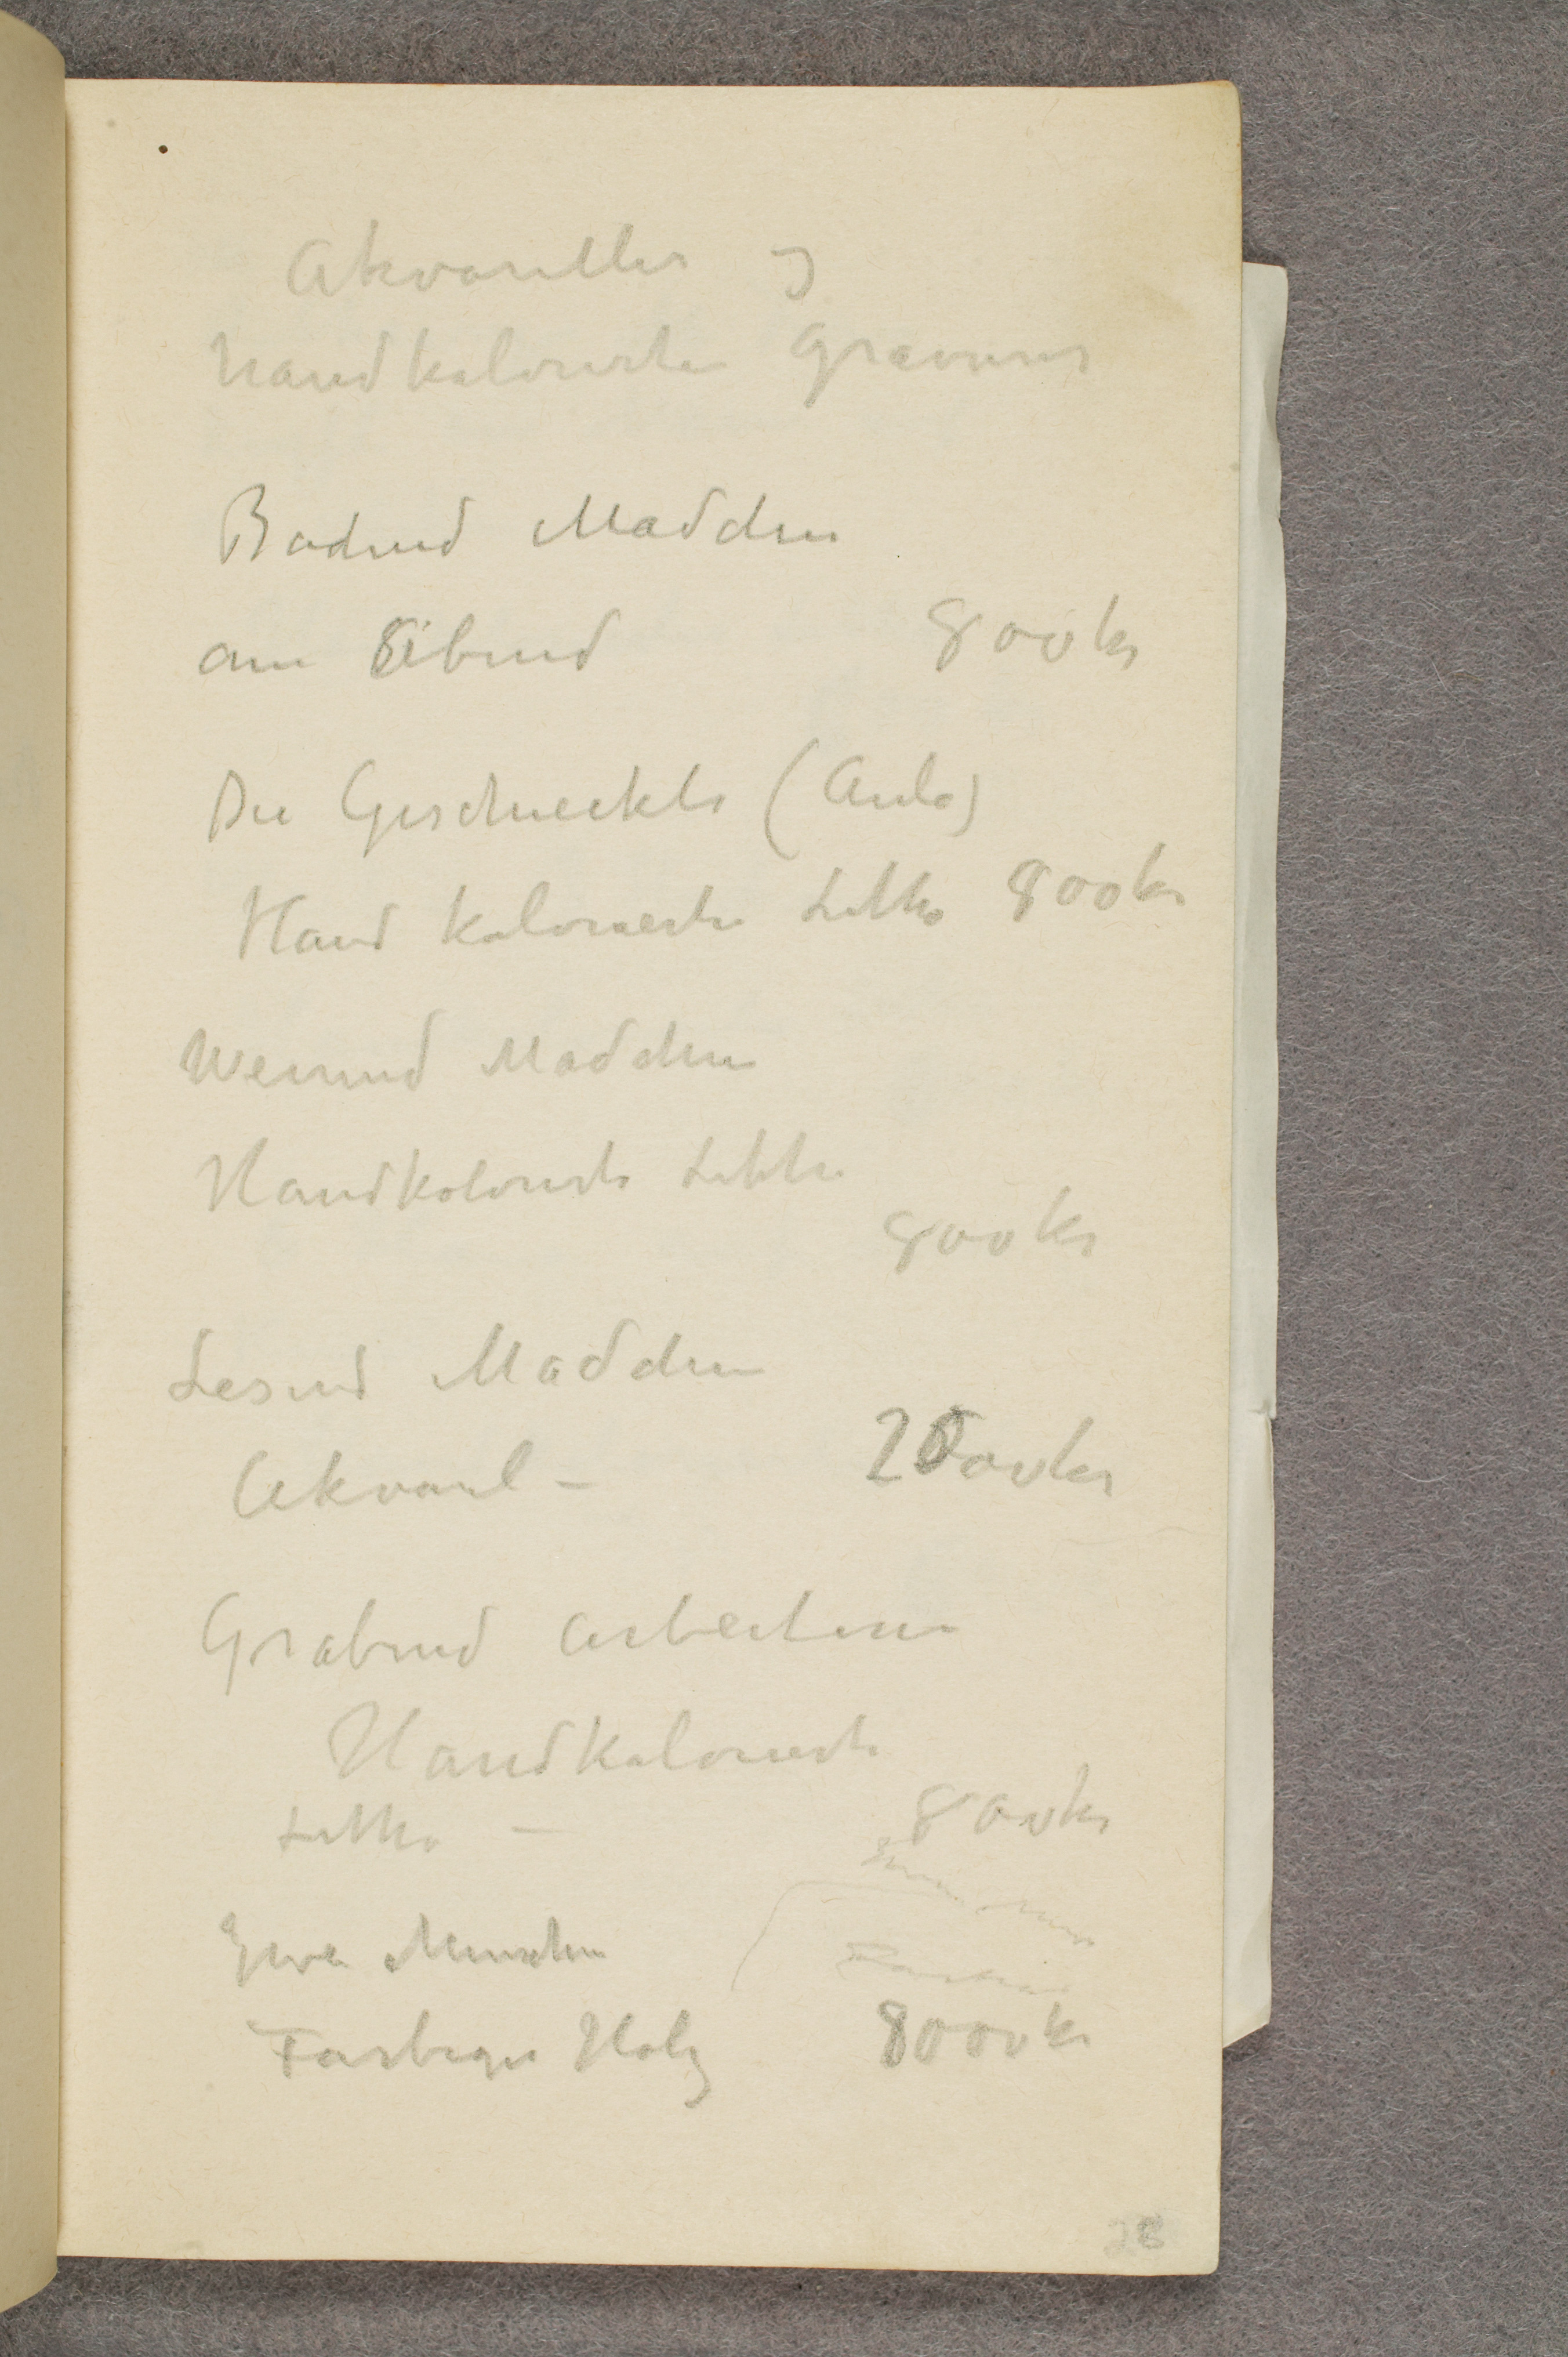 Akvareller og
handkolorerte Gravurer
Badend Madchen
am Abend 800 kr
Die Geschichte (Aula)
Hand kolorierte Litho 800 kr
Weinend Madchen
Handkolorierte Litho
800 kr
Lesend Madchen
Akvarel –
Grabend Arbeiteren
Handkolorierte
Litho – 800 kr
Zwei Menschen
Farbiger Holz 8000 kr
28